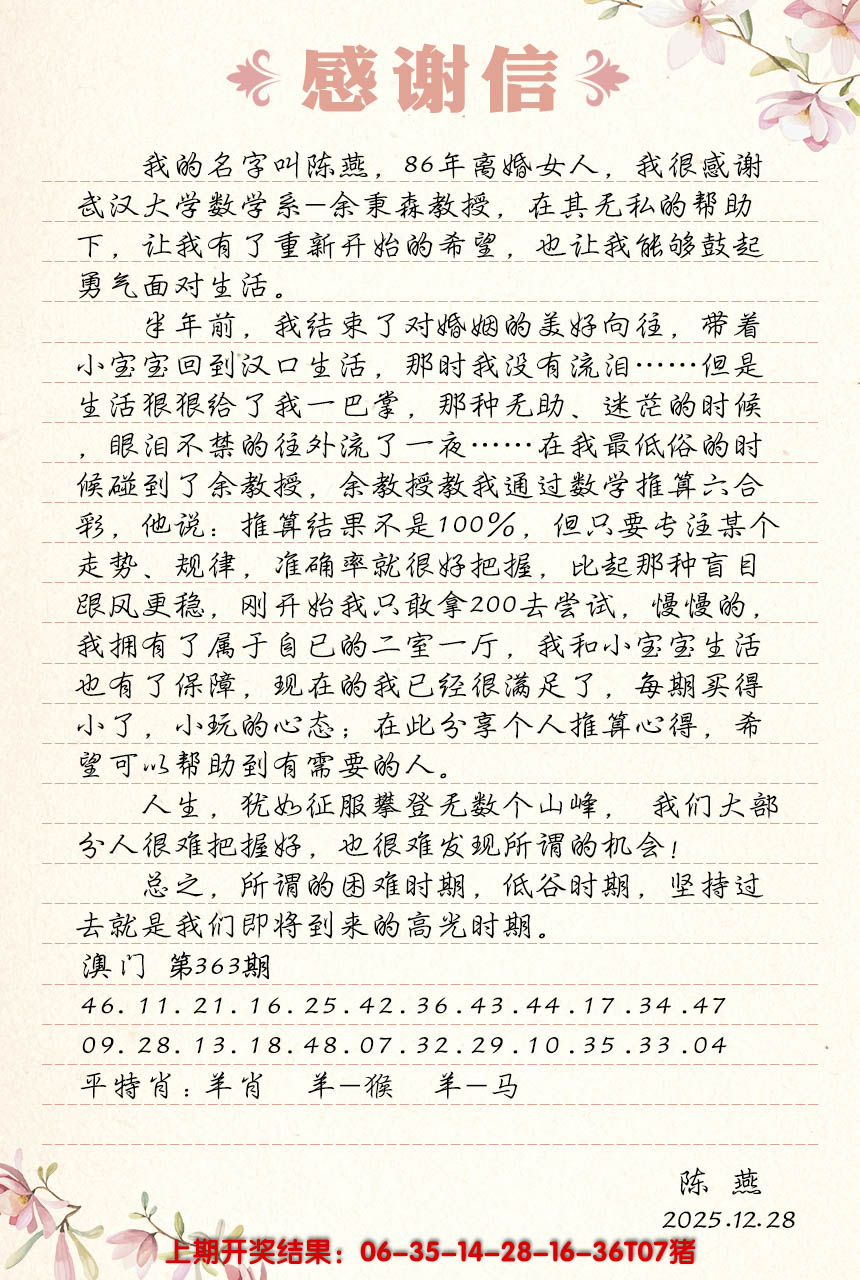 感谢信
我的名字叫陈燕，86年离婚女人，我很感谢
武汉大学数学系-余秉森教授，在其无私的帮助
下，让我有了重新开始的希望，也让我能够鼓起
勇气面对生活。
半年前，我结束了对婚姻的美好向往，带着
小宝宝回到汉口生活，那时我没有流泪……但是
生活狠狠给了我一巴掌，那种无助、迷茫的时候
，眼泪不禁的往外流了一夜……在我最低俗的时
候碰到了余教授，余教授教我通过数学推算六合
彩，他说：推算结果不是100%，但只要专注某个
走势、规律，准确率就很好把握，比起那种盲目
跟风更稳，刚开始我只敢拿200去尝试，慢慢的，
我拥有了属于自已的二室一厅，我和小宝宝生活
也有了保障，现在的我已经很满足了，每期买得
小了，小玩的心态；在此分享个人推算心得，希
望可以帮助到有需要的人。
人生，犹如征服攀登无数个山峰， 我们大部
分人很难把握好，也很难发现所谓的机会！
总之，所谓的困难时期，低谷时期，坚持过
去就是我们即将到来的高光时期。
澳门 第363期
46.11.21.16.25.42.36.43.44.17.34.47
09.28.13.18.48.07.32.29.10.35.33.04
平特肖：羊肖 羊-猴 羊-马
陈 燕
2025.12.28
上期开奖结果：06-35-14-28-16-36T07猪